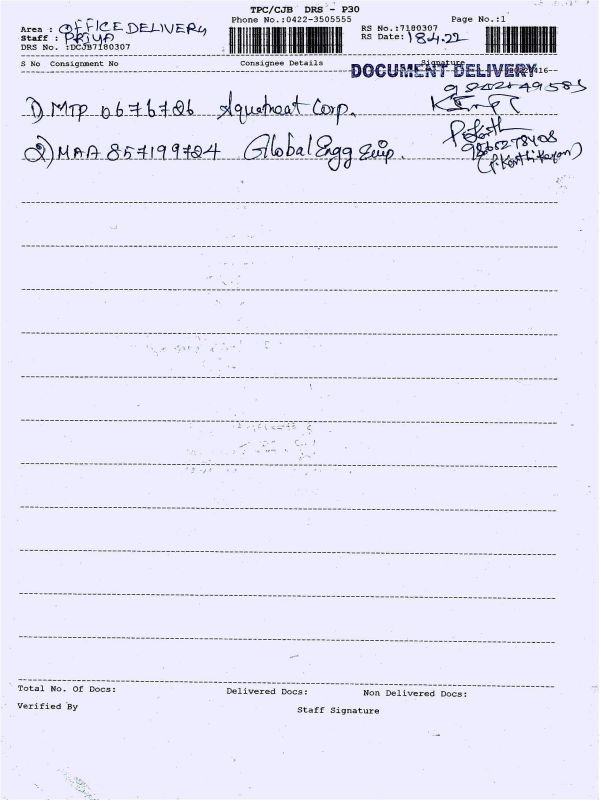 TPC/CJB DRS - P30
Phone No.:0422-3505555 Page No.:1
Area : OFFICE DELIVERY
Staff : PRIYA
DRS No. :DCJB7180307
RS No.:7180307
RS Date: 18.4.22
S No Consignment No Consignee Details Signature
DOCUMENT DELIVERY
1) MTP 0676786 Aquatreat Corp.
2) MAA 857199784 Global Engg Euip.
9865278408
(P. Karthikeyan)
Total No. Of Docs: Delivered Docs: Non Delivered Docs:
Verified By Staff Signature